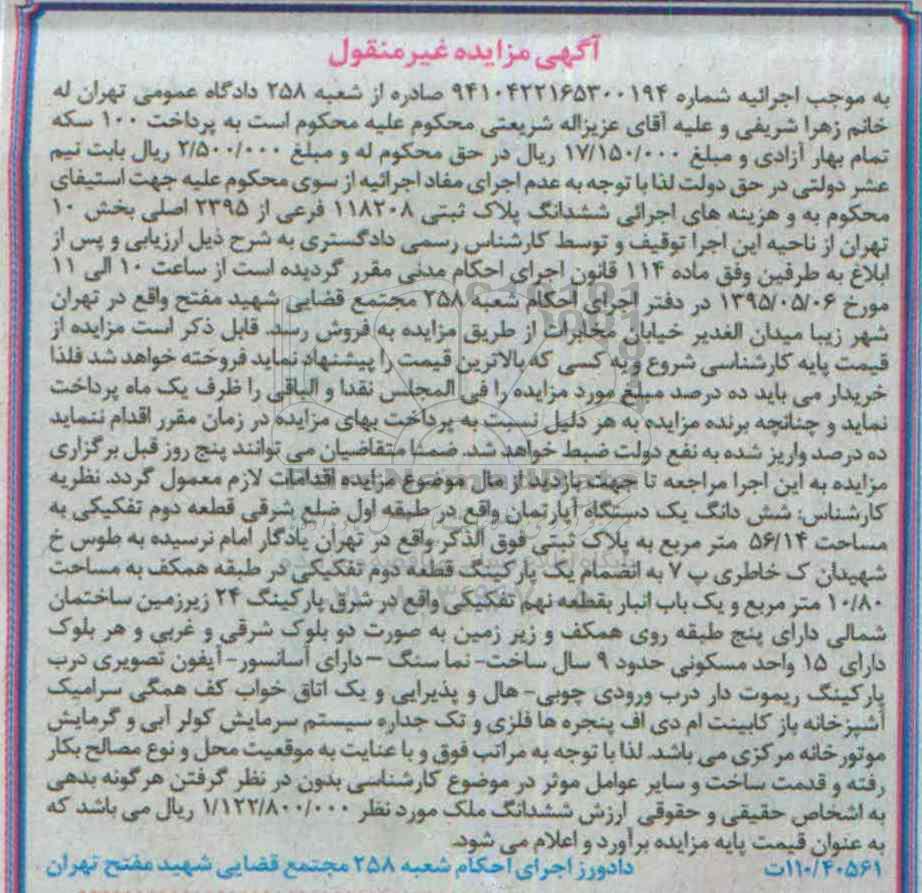 آگهی مزایده غیرمنقول
به موجب اجرائیه شماره ۹۴۱۰۴۲۲۱۶۵۳۰۰۱۹۴ صادره از شعبه ۲۵۸ دادگاه عمومی تهران له
خانم زهرا شریفی و علیه آقای عزیزاله شریعتی محکوم علیه محکوم است به پرداخت ۱۰۰ سکه
تمام بهار آزادی و مبلغ ۱۷/۱۵۰/۰۰۰ ریال در حق محکوم له و مبلغ ۲/۵۰۰/۰۰۰ ریال بابت نیم
عشر دولتی در حق دولت لذا با توجه به عدم اجرای مفاد اجرائیه از سوی محکوم علیه جهت استیفای
محکوم به و هزینه های اجرائی ششدانگ پلاک ثبتی ۱۱۸۲۰۸ فرعی از ۲۳۹۵ اصلی بخش ۱۰
تهران از ناحیه این اجرا توقیف و توسط کارشناس رسمی دادگستری به شرح ذیل ارزیابی و پس از
ابلاغ به طرفین وفق ماده ۱۱۴ قانون اجرای احکام مدنی مقرر گردیده است از ساعت ۱۰ الی ۱۱
مورخ ۱۳۹۵/۰۵/۰۶ در دفتر اجرای احکام شعبه ۲۵۸ مجتمع قضایی شهید مفتح واقع در تهران
شهر زیبا میدان الغدیر خیابان مخابرات از طریق مزایده به فروش رسد. قابل ذکر است مزایده از
قیمت پایه کارشناسی شروع و به کسی که بالاترین قیمت را پیشنهاد نماید فروخته خواهد شد فلذا
خریدار می باید ده درصد مبلغ مورد مزایده را فی المجلس نقدا و الباقی را ظرف یک ماه پرداخت
نماید و چنانچه برنده مزایده به هر دلیل نسبت به پرداخت بهای مزایده در زمان مقرر اقدام ننماید
ده درصد واریز شده به نفع دولت ضبط خواهد شد. ضمنا متقاضیان می توانند پنج روز قبل برگزاری
مزایده به این اجرا مراجعه تا جهت بازدید از مال موضوع مزایده اقدامات لازم معمول گردد. نظریه
کارشناس: شش دانگ یک دستگاه آپارتمان واقع در طبقه اول ضلع شرقی قطعه دوم تفکیکی به
مساحت ۵۶/۱۴ متر مربع به پلاک ثبتی فوق الذکر واقع در تهران یادگار امام نرسیده به طوس خ
شهیدان ک خاطری پ ۷ به انضمام یک پارکینگ قطعه دوم تفکیکی در طبقه همکف به مساحت
۱۰/۸۰ متر مربع و یک باب انبار بقطعه نهم تفکیکی واقع در شرق پارکینگ ۲۴ زیرزمین ساختمان
شمالی دارای پنج طبقه روی همکف و زیر زمین به صورت دو بلوک شرقی و غربی و هر بلوک
دارای ۱۵ واحد مسکونی حدود ۹ سال ساخت- نما سنگ – دارای آسانسور- آیفون تصویری درب
پارکینگ ریموت دار درب ورودی چوبی- هال و پذیرایی و یک اتاق خواب کف همگی سرامیک
آشپزخانه باز کابینت ام دی اف پنجره ها فلزی و تک جداره سیستم سرمایش کولر آبی و گرمایش
موتورخانه مرکزی می باشد. لذا با توجه به مراتب فوق و با عنایت به موقعیت محل و نوع مصالح بکار
رفته و قدمت ساخت و سایر عوامل موثر در موضوع کارشناسی بدون در نظر گرفتن هرگونه بدهی
به اشخاص حقیقی و حقوقی ارزش ششدانگ ملک مورد نظر ۱/۱۲۲/۸۰۰/۰۰۰ ریال می باشد که
به عنوان قیمت پایه مزایده برآورد و اعلام می شود.
۱۱۰/۴۰۵۶۱ت دادورز اجرای احکام شعبه ۲۵۸ مجتمع قضایی شهید مفتح تهران